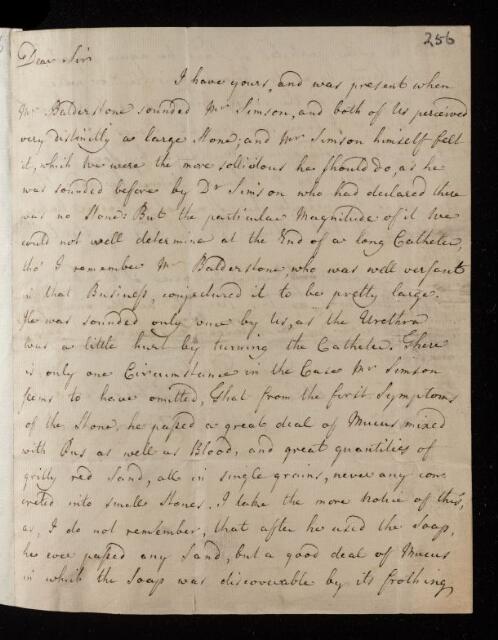 256
Dear Sir
I have yours, and was present when
Mr Balderstone sounded Mr Simson, and both of Us perceived
very distinctly a large Stone; and Mr Simson himself felt
it, which We were the more sollicitous he should do, as he
was sounded before by Dr Simson who had declared there
was no Stone: But the particular Magnitude of it We
could not well determine at the End of a long Catheter,
tho' I remember Mr Balderstone, who was well versant
in that Business, conjectured it to be pretty large.
He was sounded only once by Us, as the Urethra
was a little hurt by turning the Catheter. There
is only one Circumstance in the Case Mr Simson
seems to have omitted, That from the first Symptoms
of the Stone, he passed a great deal of Mucus mixed
with Pus as well as Blood, and great quantities of
gritty red Sand, all in single grains, never any con
creted into small Stones. I take the more notice of this,
as, I do not remember, that after he used the Soap,
he ever passed any Sand, but a good deal of Mucus
in which the Soap was discoverable by its frothing,